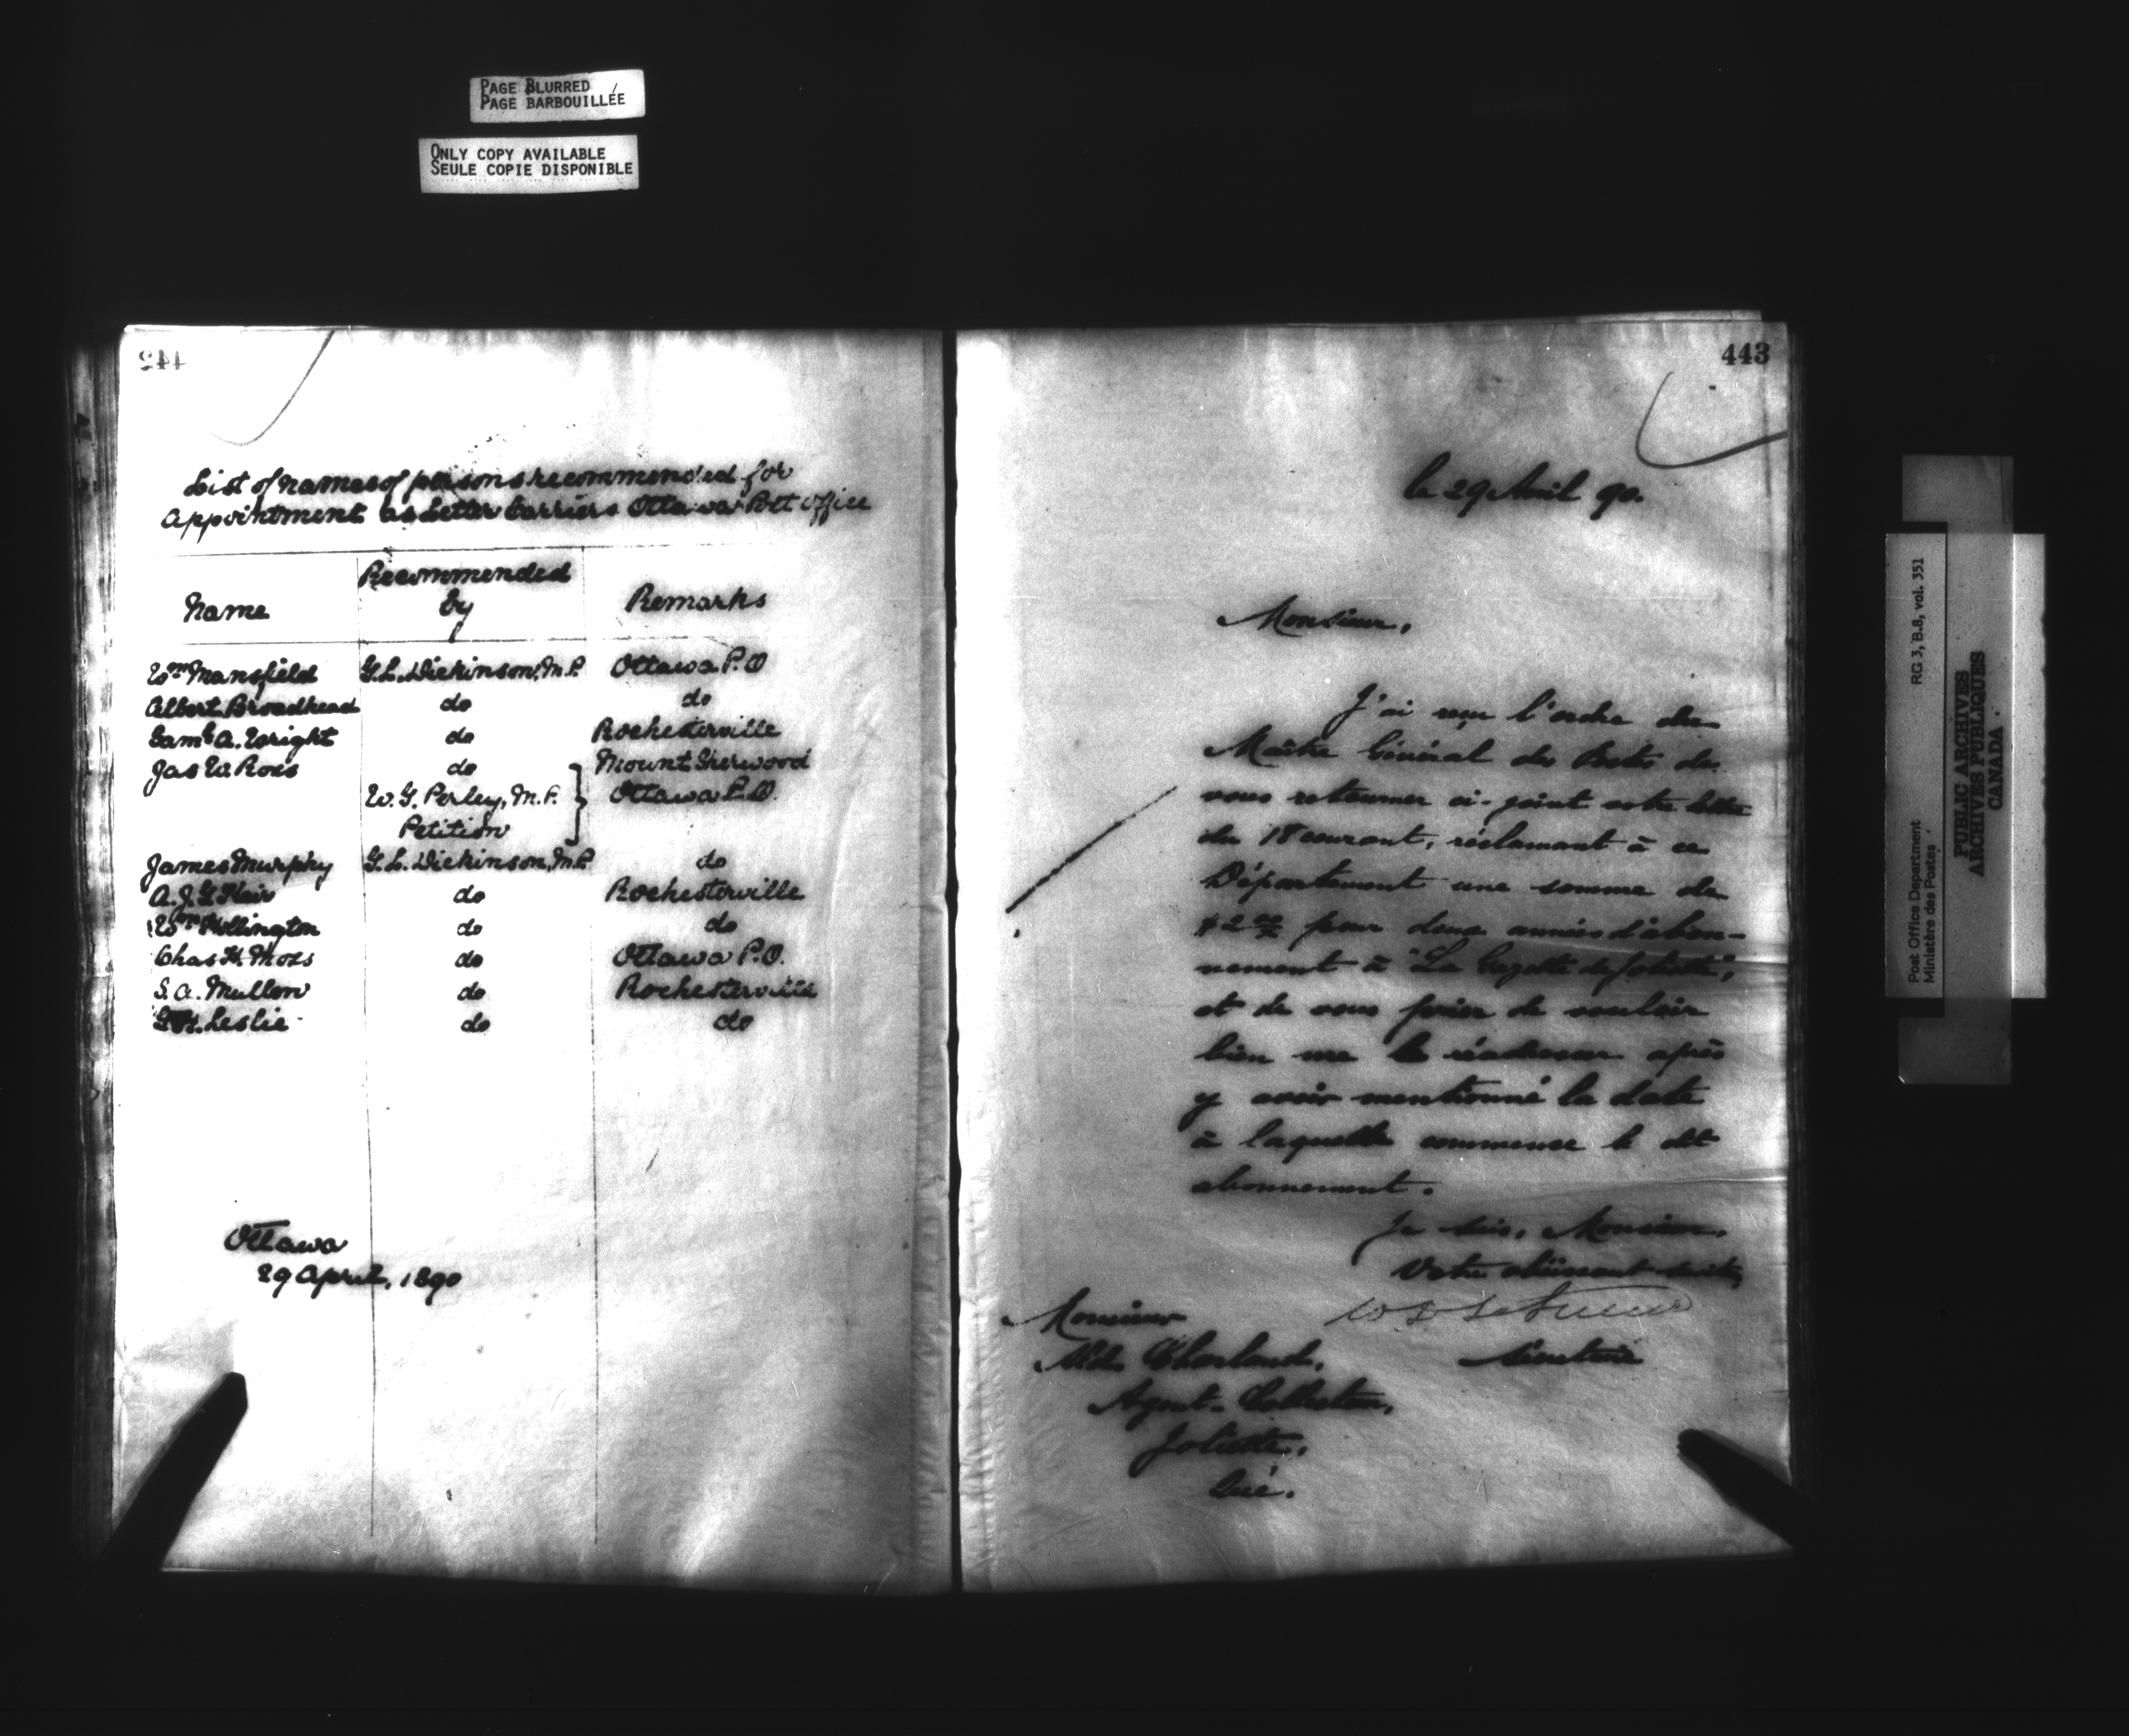 PAGE BLURRED
PAGE BARBOUILLÉE
ONLY COPY AVAILABLE
SEULE COPIE DISPONIBLE
442
List of names of persons recommended for
appointment as Letter Carriers Ottawa Post Office
Name Recommended by Remarks
Wm Mansfield G.L. Dickinson, M.P. Ottawa P.O
Albert Broadhead do do
Saml A. Wright do Rochesterville
Jas W. Ross do Mount Sherwood
W. G. Perley, M.P. } Ottawa P.O.
Petition
James Murphy G. L. Dickinson, M.P. do
A. J. G. do Rochesterville
Wm do do
Chas H. Moss do Ottawa P.O.
S. A. Mullen do Rochesterville
Leslie do do
Ottawa
29 April, 1890
443
le 29 Avril 90.
Monsieur,
J'ai reçu l'ordre du
Maître Général des Postes de
vous retourner ci-joint votre lettre
du 18 courant, réclamant à ce
Département une somme de
$2.00 pour deux années d'abon-
nement à "La Gazette de Joliette",
et de vous prier de vouloir
bien me la réadresser après
y avoir mentionné la date
à laquelle commence le dit
abonnement.
Je suis, Monsieur,
Votre obéissant servit.
W D LeSueur
Secrétaire
Monsieur
Charland,
Agent-Collecteur,
Joliette,
Qué.
Post Office Department RG 3, B.8, vol. 351
Ministère des Postes
PUBLIC ARCHIVES
ARCHIVES PUBLIQUES
CANADA